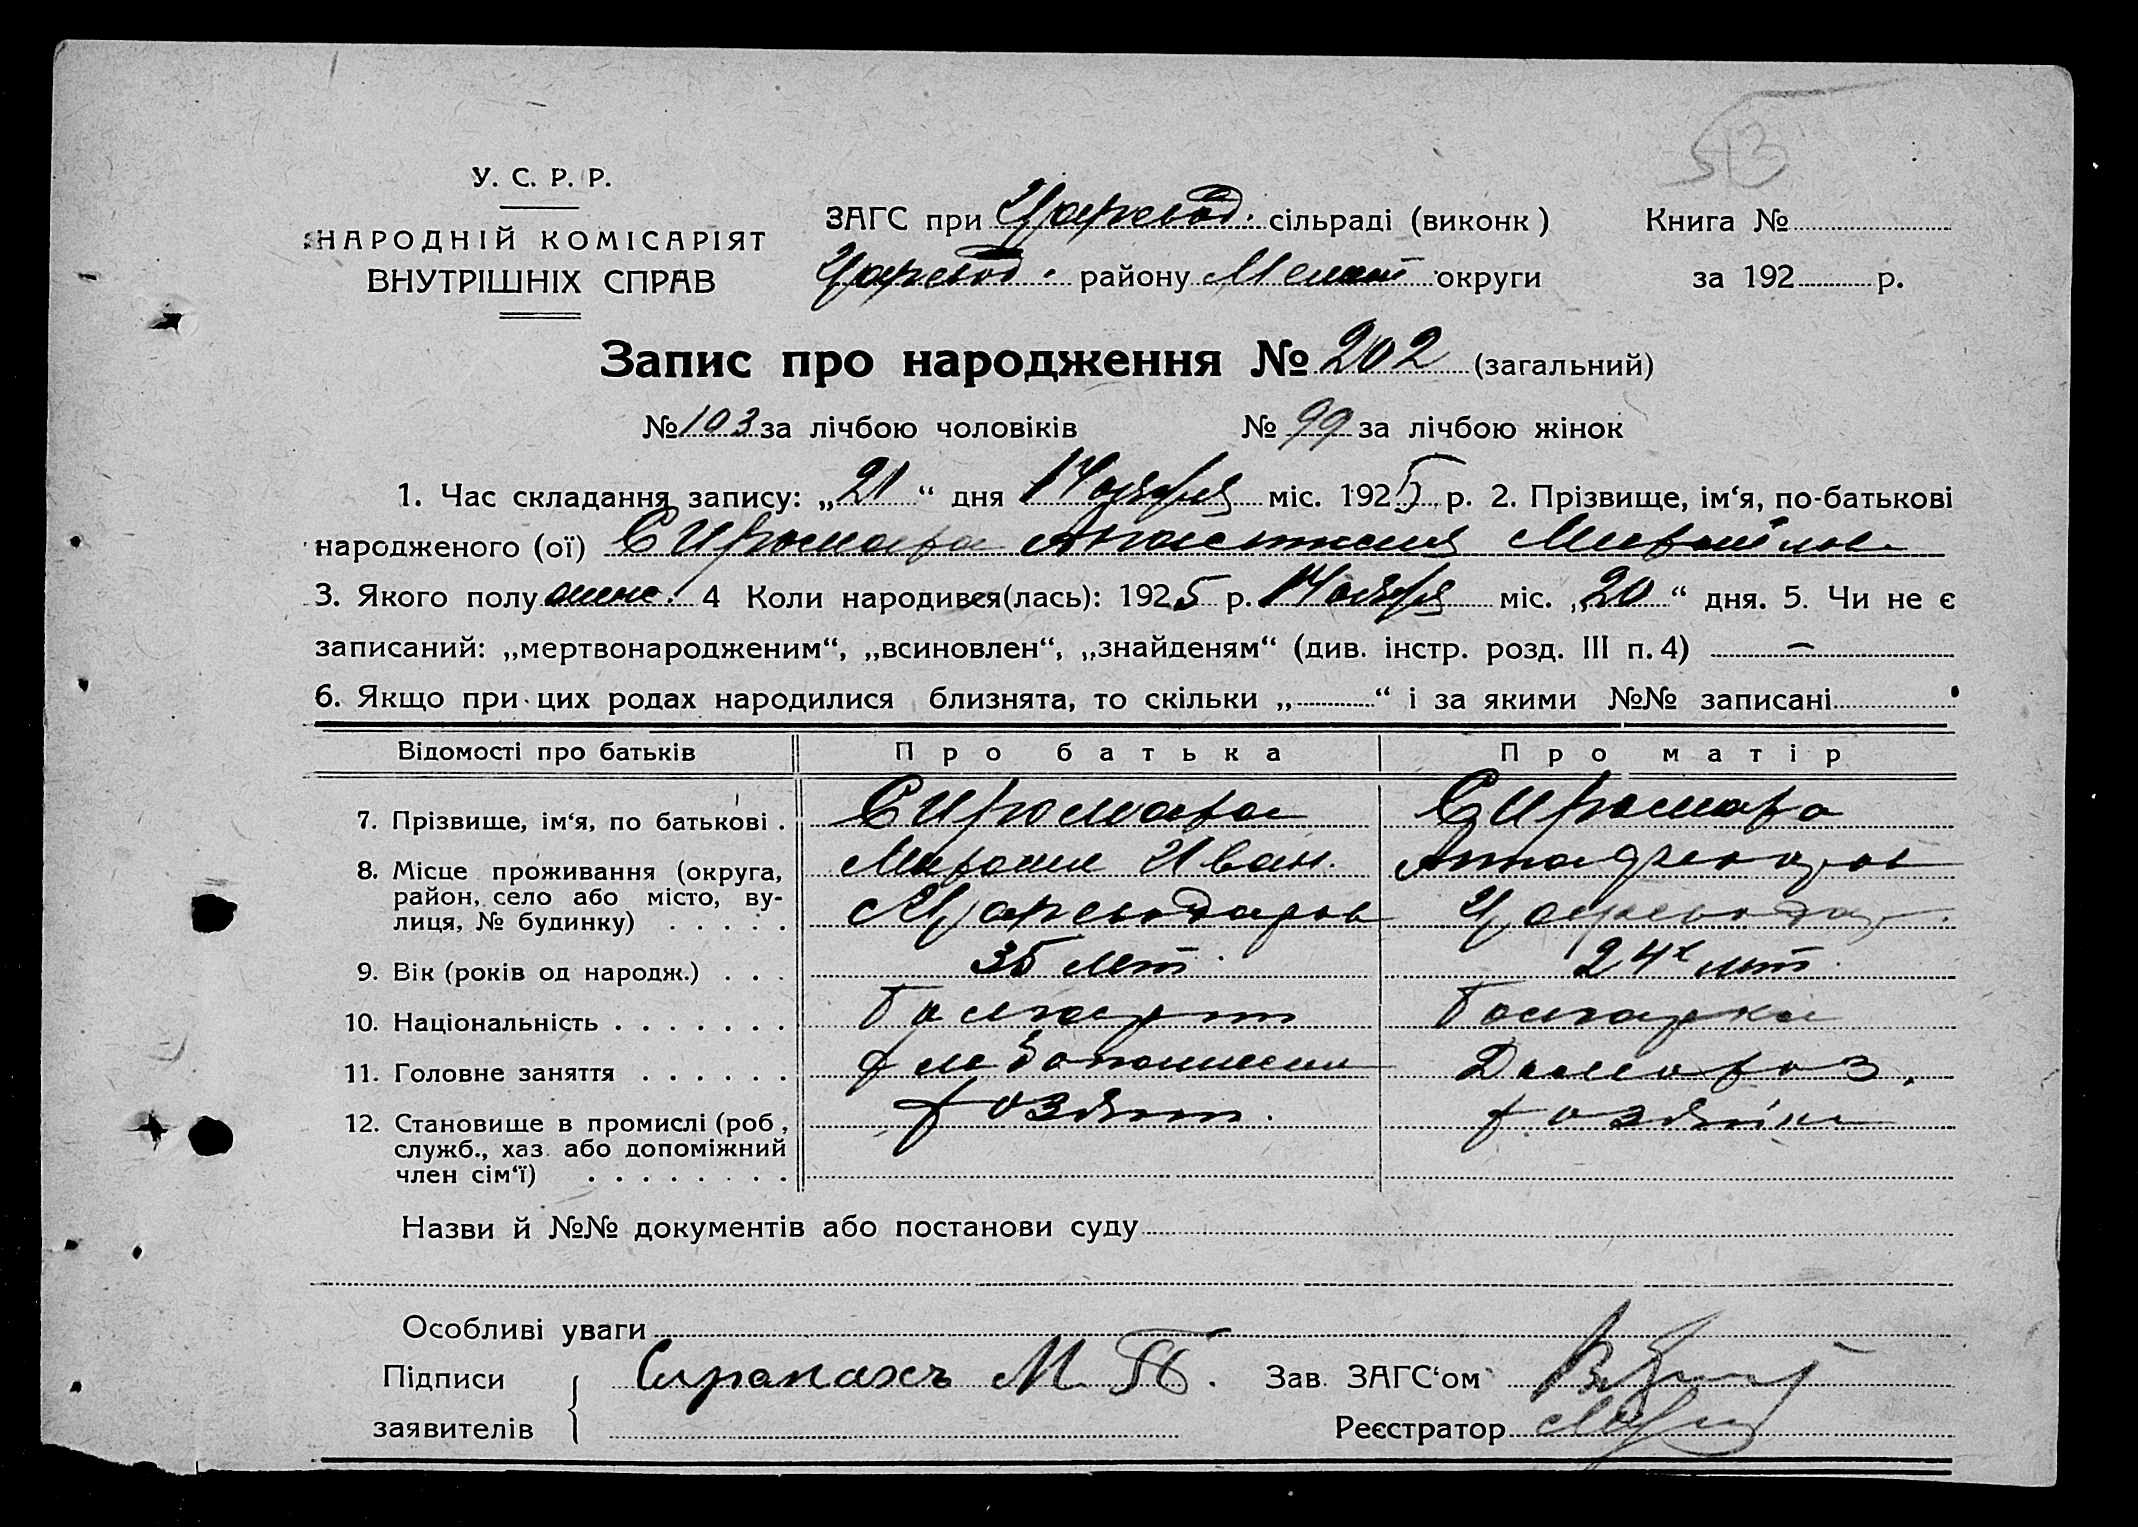 53
У. С. Р. Р.
НАРОДНІЙ КОМІСАРІЯТ
ВНУТРІШНІХ СПРАВ
ЗАГС при Царевод. сільраді (виконк)
Книга №
Царевод. району Мелит округи
за 192 р.
Запис про народження № 202 (загальний)
№ 103 за лічбою чоловіків № 99 за лічбою жінок
1. Час складання запису: „21“ дня Ноября міс. 1925 р. 2. Прізвище, ім‘я, по-батькові
народженого (ої) Анастасия
3. Якого полу женс. 4 Коли народився(лась): 1925 р. Ноября міс. „20“ дня. 5. Чи не є
записаний: „мертвонародженим“, „всиновлен“, „знайденям“ (див. інстр. розд. III п. 4) —
6. Якщо при цих родах народилися близнята, то скільки „ “ і за якими №№ записані
Відомості про батьків Про батька Про матір
7. Прізвище, ім‘я, по батькові .
8. Місце проживання (округа, Иван. Анна
район, село або місто, ву-
лиця, № будинку) . . . . .
9. Вік (років од народж.) . . . 35 лет 24 лет
10. Національність . . . . . . . Болгарин Болгарка
11. Головне заняття . . . . . . хлебопашец Домохоз.
12. Становище в промислі (роб, хозяин. хозяйка
служб., хаз. або допоміжний
член сім‘ї) . . . . . . . .
Назви й №№ документів або постанови суду
Особливі уваги
Підписи М
заявителів
Зав. ЗАГС‘ом
Реєстратор